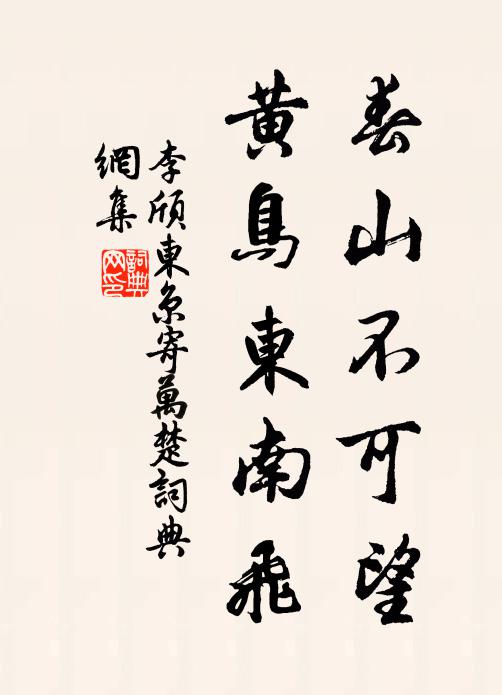 春山不可望
黄鳥東南飛
李頎東京寄萬楚詞典
網集
詞典
网印